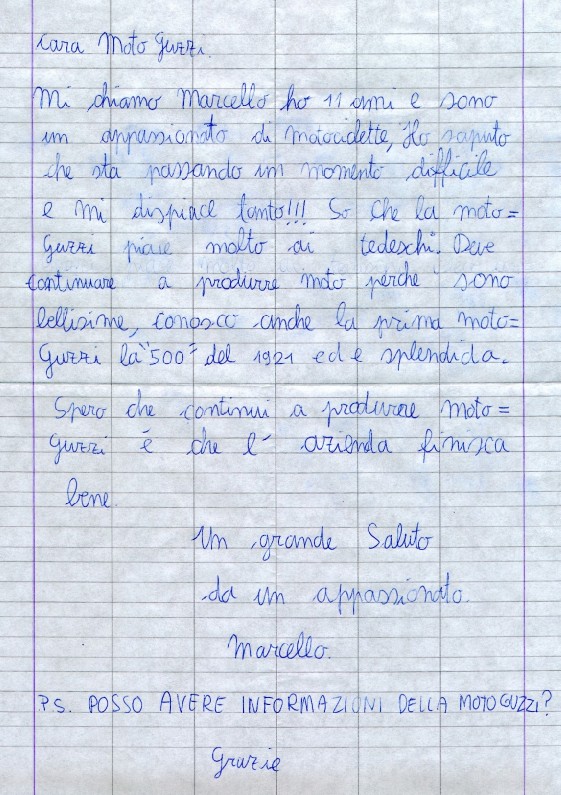 Cara Moto Guzzi.
Mi chiamo Marcello ho 11 anni e sono
un appassionato di motociclette, Ho saputo
che sta passando un momento difficile
e mi dispiace tanto!!! So che la moto=
Guzzi piace molto ai tedeschi. Deve
continuare a produrre moto perche sono
bellisime, conosco anche la prima moto=
Guzzi la "500" del 1921 ed e splendida.
Spero che continui a produrre Moto=
guzzi è che l' azienda finisca
bene.
Un grande Saluto
da un appassionato.
Marcello.
P.S. POSSO AVERE INFORMAZIONI DELLA MOTO GUZZI?
Grazie